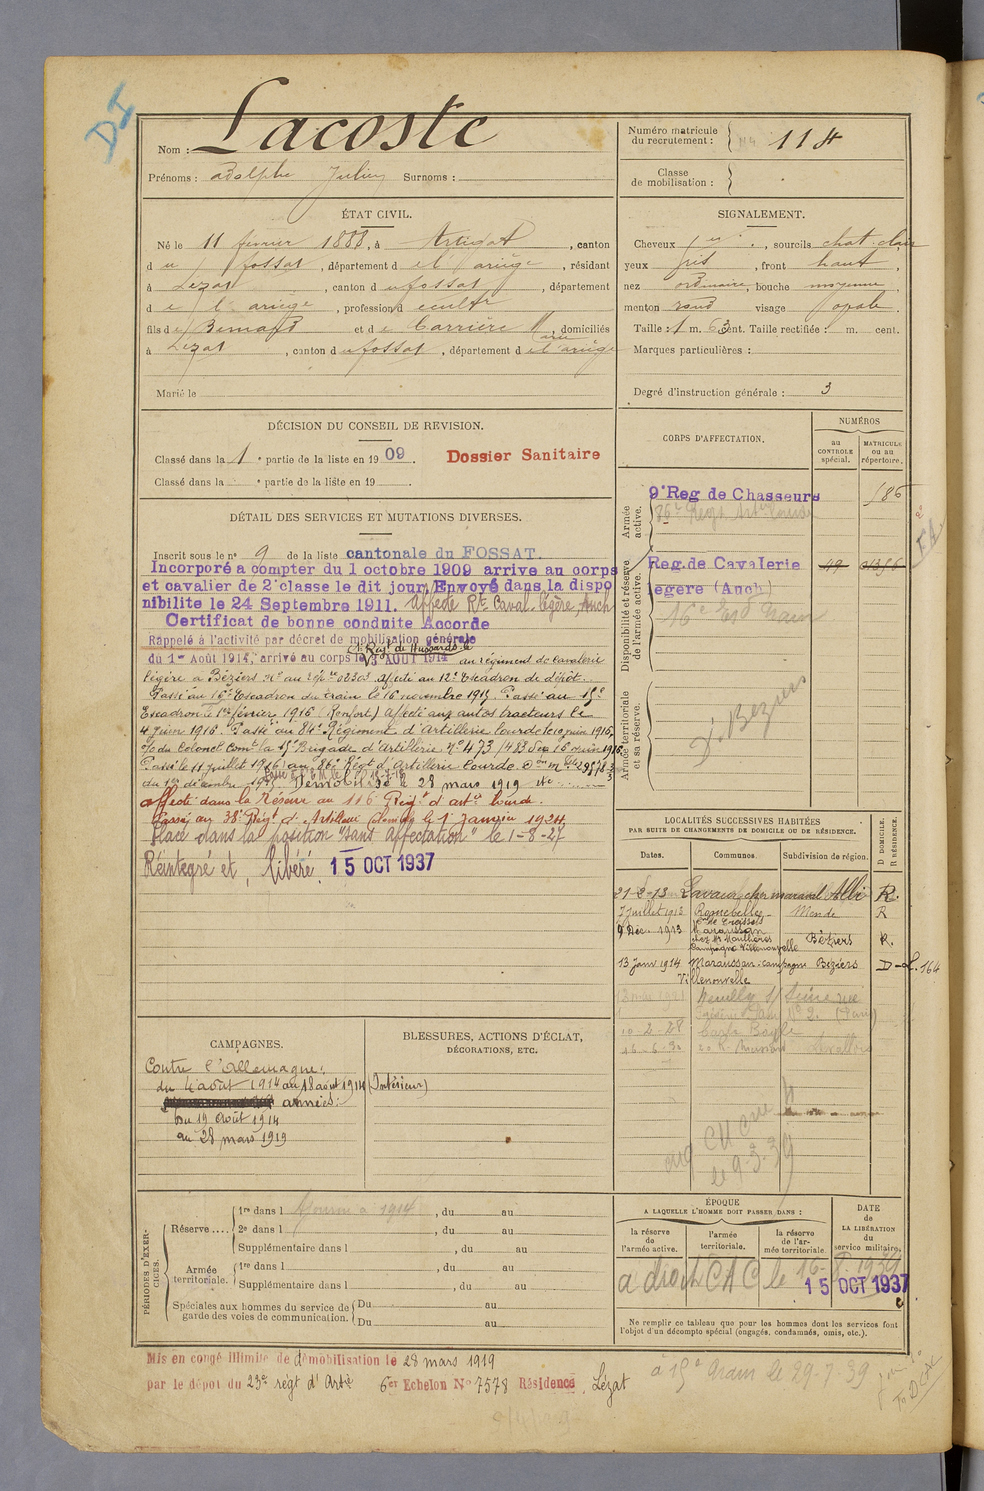 DI
Nom : Lacoste
Prénoms : Adolphe Julien Surnoms :
Numéro matricule du recrutement : 114
Classe de mobilisation :
ÉTAT CIVIL.
Né le 11 février 1888, à Artigat, canton
du fossat, département de l'ariège, résidant
à Lézat, canton du fossat, département
de l'ariège, profession d cultr
fils de Bernard et de Carrière Marie, domiciliés
à Lezat, canton du fossat, département de l'ariège
Marié le
SIGNALEMENT.
Cheveux , sourcils chat. clair
yeux gris, front haut,
nez ordinaire, bouche moyenne,
menton rond visage ovale.
Taille : 1 m. 63 cent. Taille rectifiée : m. cent.
Marques particulières :
Degré d'instruction générale : 3
DÉCISION DU CONSEIL DE REVISION.
Classé dans la 1e partie de la liste en 1909.
Dossier Sanitaire
Classé dans la e partie de la liste en 19
DÉTAIL DES SERVICES ET MUTATIONS DIVERSES.
Inscrit sous le n° 9 de la liste cantonale du FOSSAT.
Incorporé a compter du 1 octobre 1909 arrive au corps
et cavalier de 2e classe le dit jour Envoyé dans la dispo
nibilite le 24 Septembre 1911. Affecté Rt Caval. légère, Auch
Certificat de bonne conduite Accorde
Rappelé à l'activité par décret de mobilisation générale
du 1er Août 1914, arrivé au corps le 3 AOUT 1914 au régiment de cavalerie
légère à Béziers affecté au 12e Escadron de dépôt.
Passé au 16e Escadron du train le 16 novembre 1915. Passé au 15e
Escadron le 1er février 1916 (Renfort) Affecté aux autos tracteurs le
4 juin 1916. Passé au 84e Régiment d'Artillerie lourde le 10 juin 1916,
du Colonel Comt la 15e Brigade d'Artillerie n° 473 /483 du 16 juin 1916.
Passé le 11 juillet 1916 au 86e Régt d'Artillerie Lourde.
du 1er décembre Démobilisé le 28 mars 1919
affecté dans la Réserve au 116 Régt d'artie lourde.
Passé au 38e Régt d'Artillerie le 1 Janvier 1924
Placé dans la position "sans affectation" le 1-8-27
Réintegré et libéré. 15 OCT 1937
CORPS D'AFFECTATION.
NUMÉROS
au CONTROLE spécial.
MATRICULE ou au répertoire.
Armée active.
9e Reg de Chasseurs
86e Regt Artie Lourde
Disponibilité et réserve de l'armée active.
Reg. de Cavalerie 49
legere (Auch)
16e Esc Train
Armée territoriale et sa réserve.
D. Beziers
LOCALITÉS SUCCESSIVES HABITÉES
PAR SUITE DE CHANGEMENTS DE DOMICILE OU DE RÉSIDENCE.
Dates. Communes. Subdivision de région. D DOMICILE. R RÉSIDENCE.
21-2-13 Lavaur chez maraval Albi R.
7 juillet 1913 Mende R
9 Déc. 1913 Maraussan Béziers R.
Campagne Villenouvelle
13 Janv 1914 Maraussan campagne Béziers D - L. 164
Villenouvelle
Neuilly s/ Seine
10-2-28 Carla Bayle
16-6-32 Levallois
CAMPAGNES.
Contre l'Allemagne:
du 4 août 1914 au 18 août 1914 (Intérieur)
armées:
Du 19 Août 1914
au 28 mars 1919
BLESSURES, ACTIONS D'ÉCLAT,
DÉCORATIONS, ETC.
le 9-3-39
PÉRIODES D'EXERCICES.
Réserve .... 1re dans l Ajourné à 1914, du au
2e dans l , du au
Supplémentaire dans l , du au
Armée territoriale. 1re dans l , du au
Supplémentaire dans l , du au
Spéciales aux hommes du service de garde des voies de communication. Du au
Du au
ÉPOQUE
A LAQUELLE L'HOMME DOIT PASSER DANS :
la réserve de l'armée active.
l'armée territoriale.
la réserve de l'armée territoriale
DATE de LA LIBÉRATION du service militaire.
a droit CAC le 16-
15 OCT 1937
Ne remplir ce tableau que pour les hommes dont les services font
l'objet d'un décompte spécial (engagés, condamnés, omis, etc.).
Mis en congé illimité de démobilisation le 28 mars 1919
par le dépôt du 23e régt d'Artie 6er Echelon N° 7578 Résidence, Lézat
à 15e train le 29-7-39